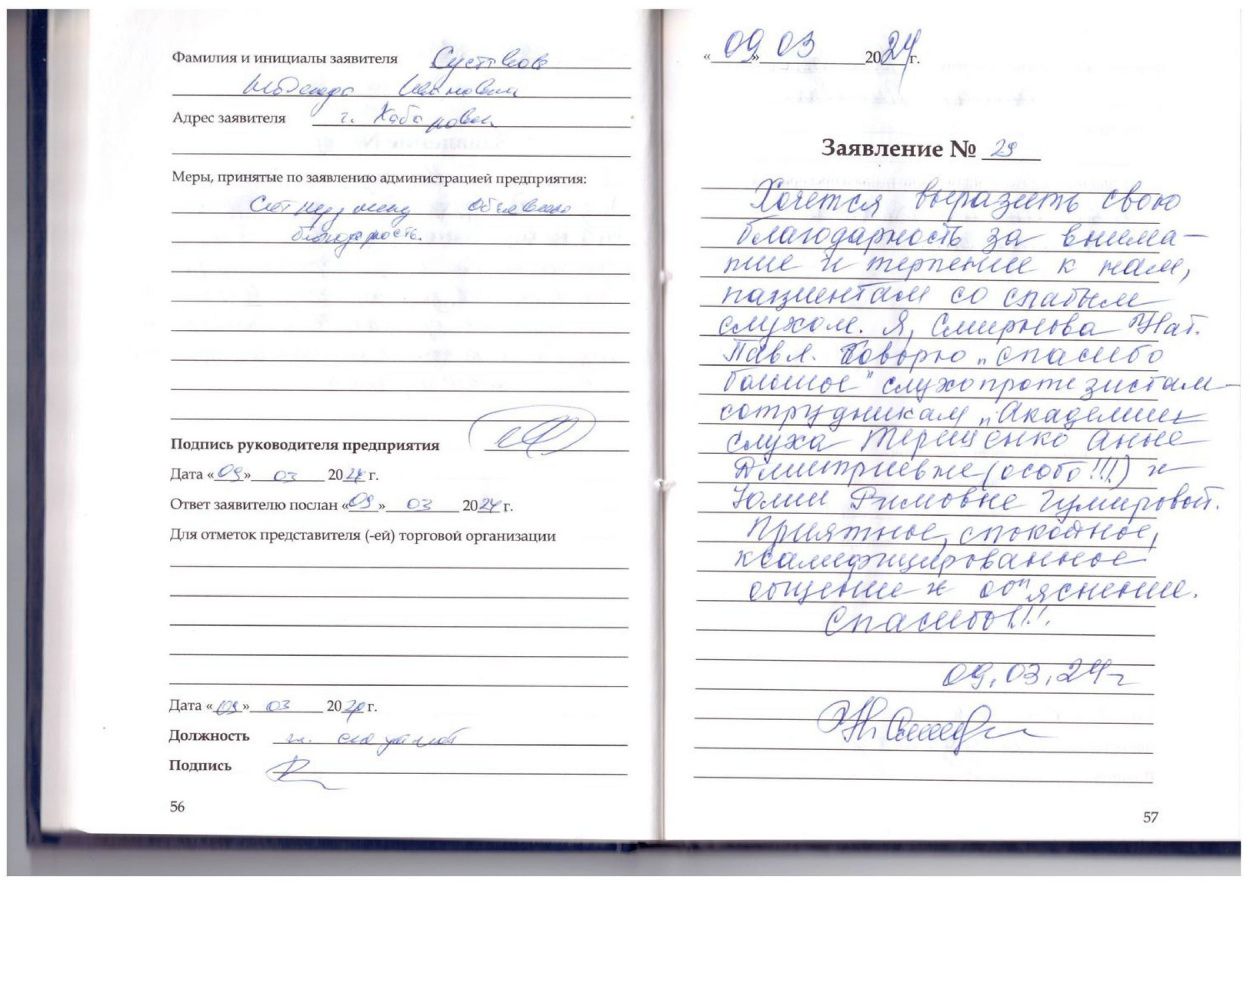 Фамилия и инициалы заявителя
Ивановна
Адрес заявителя г. Хабаровск
Меры, принятые по заявлению администрацией предприятия:
Сотруднику объявлена
благодарность.
Подпись руководителя предприятия
Дата «09» 03 2024 г.
Ответ заявителю послан «09» 03 2024 г.
Для отметок представителя (-ей) торговой организации
Дата «09» 03 2024 г.
Должность
Подпись
56
«09» 03 2024 г.
Заявление № 29
Хочется выразить свою
благодарность за внима-
ние и терпение к нам,
пациентам со слабым
слухом. Я, Смирнова Нат.
Павл. Говорю „спасибо
большое" слухопротезистам –
сотрудникам „Академии
слуха Терещенко Анне
Дмитриевне (особо!!!) и
Юлии Римовне Гумировой.
Приятное, спокойное,
квалифицированное
общение и об"яснение.
Спасибо!!!
09.03.24 г
57